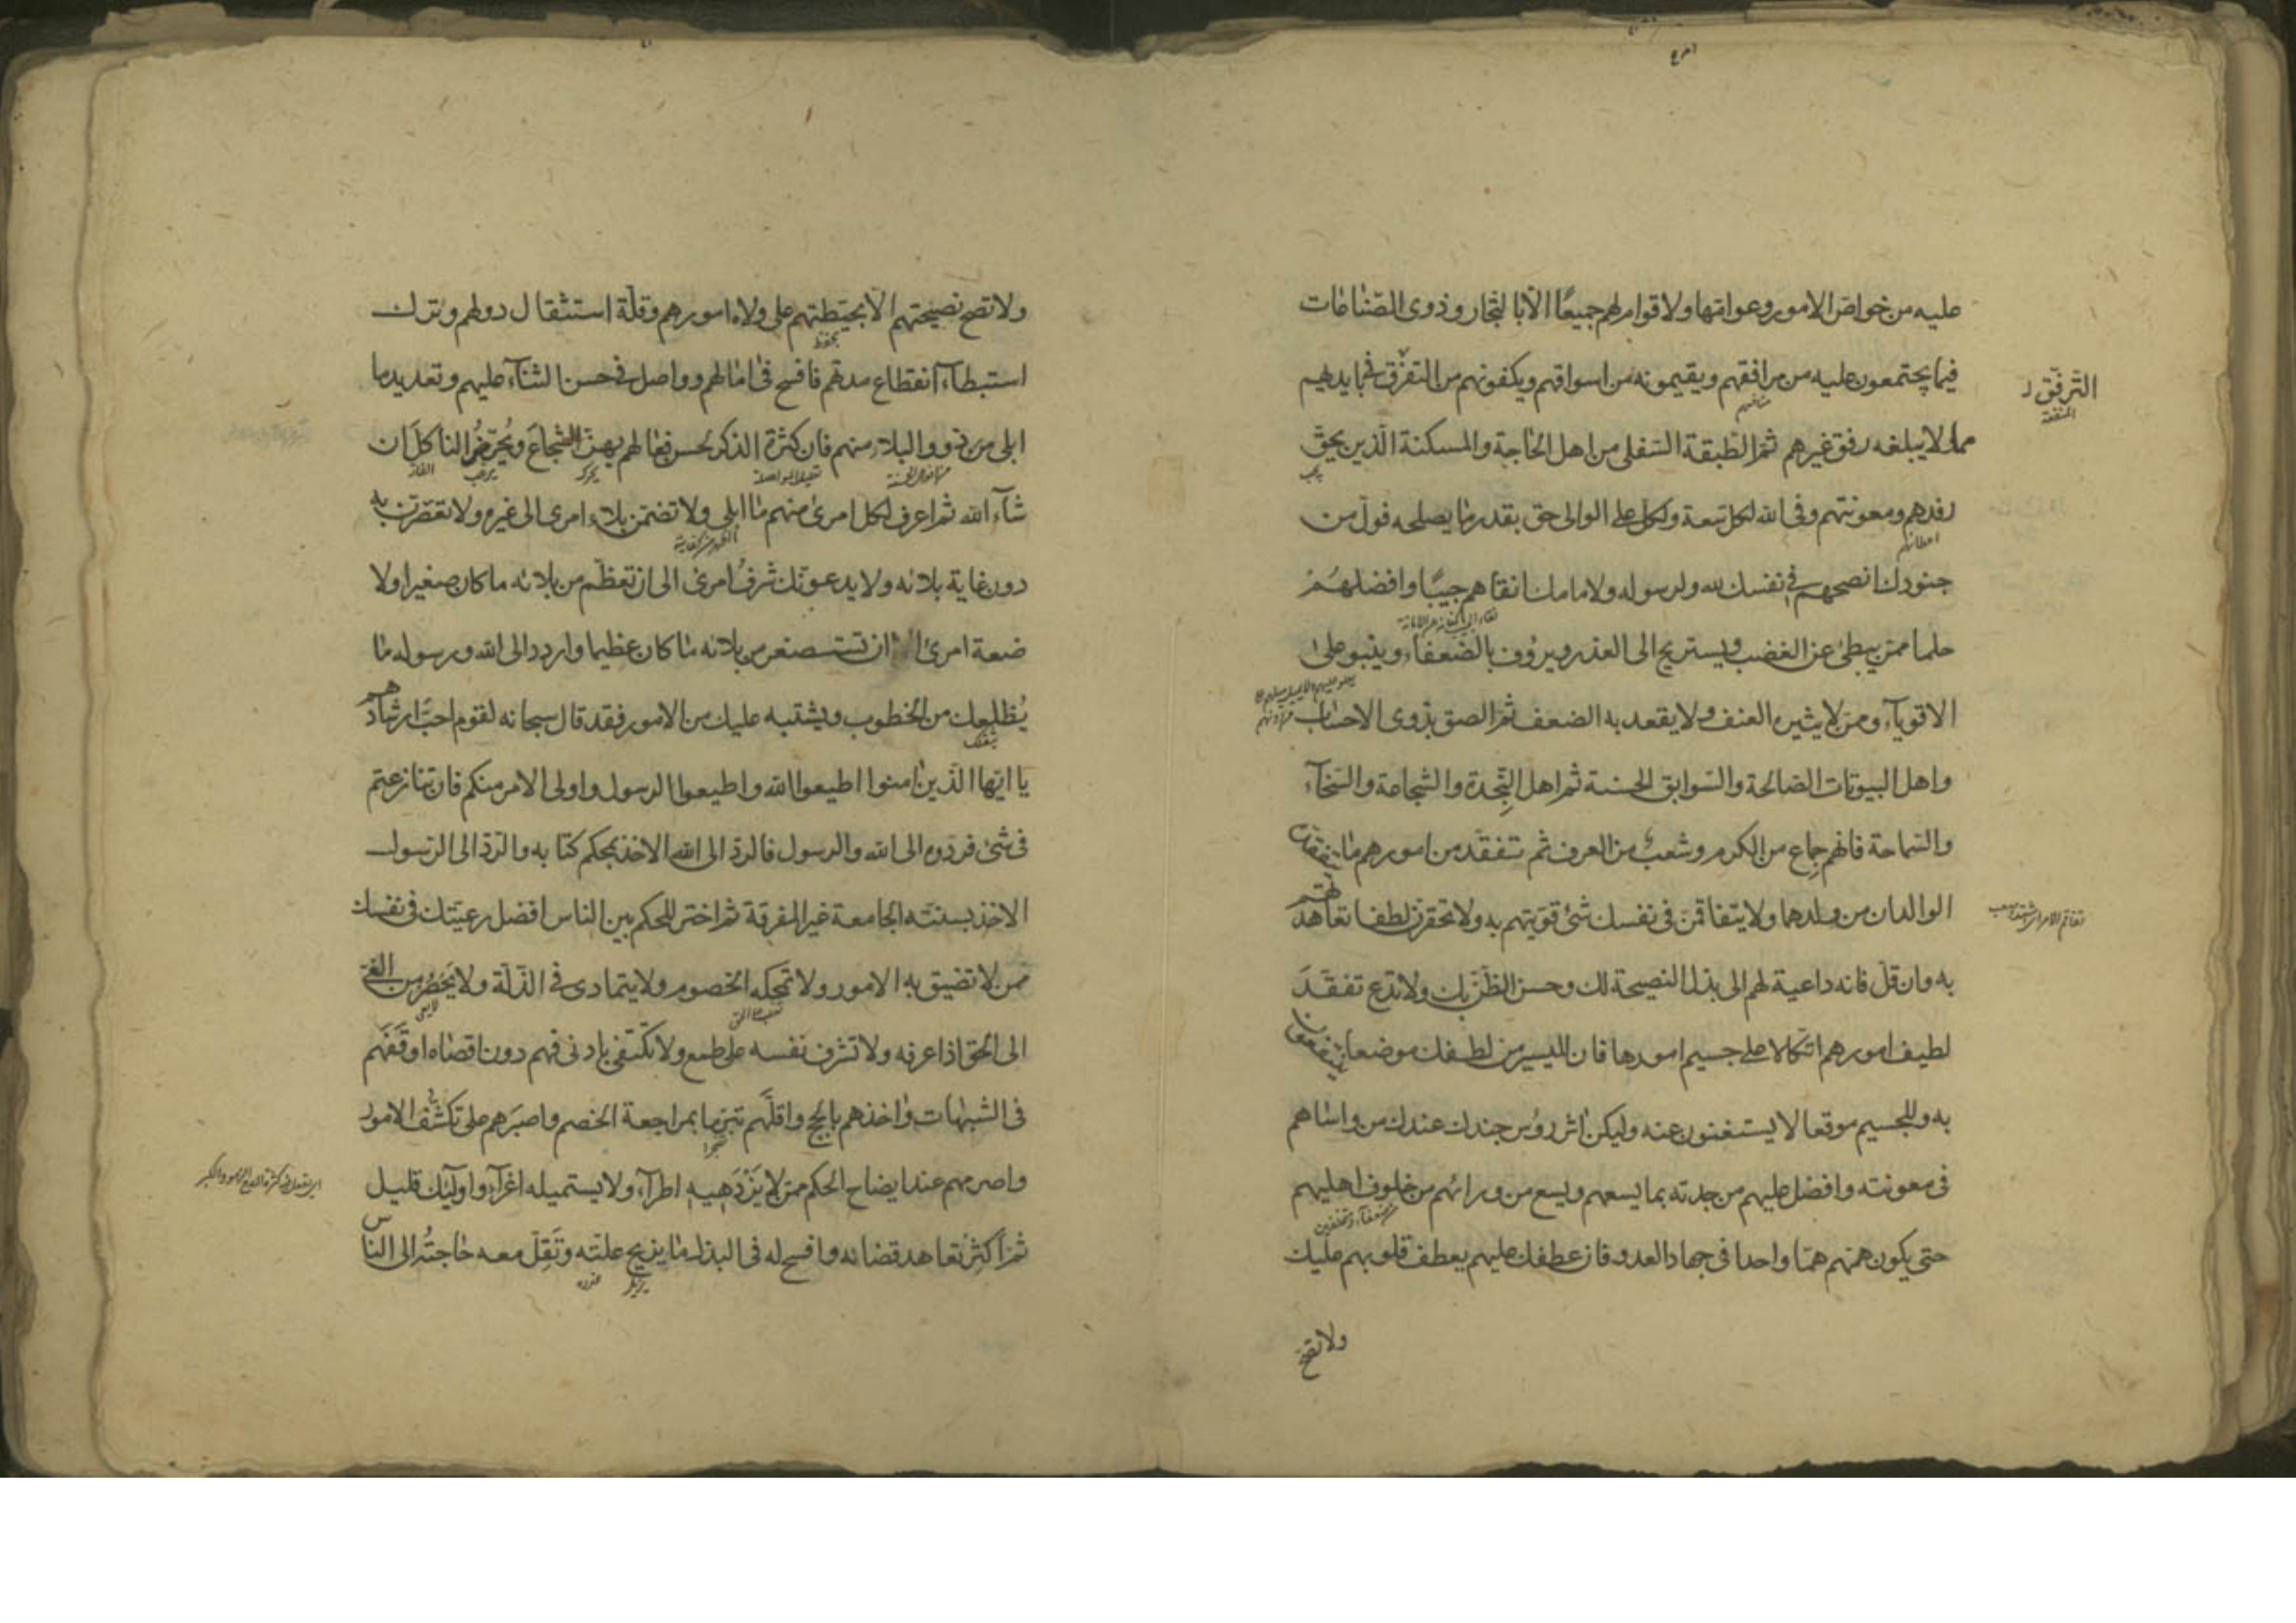 عليه من خواص الامور وعوامها ولا قوام لهم جميعًا الّا بالتجار وذوى الصناعات
فيما يجتمعون عليه من مرافقهم ويقيمونه من اسواقهم ويكفونهم من التفرق بايديهم
الترفّق
المنفعة
منافعهم
مما لا يبلغه رفق غيرهم ثم الطبقة السفلى من اهل الحاجة والمسكنة الّذين يحقّ
يجب
رفدهم ومعونتهم وفى الله لكل سعة ولكل على الوالى حق بقدر ما يصلحه فولّ من
اعطائهم
جنودك انصحهم فى نفسك لله ولرسوله ولامامك انقاهم جيبًا وافضلهم
حلما ممن يبطئ عن الغضب ويستريح الى العذر ويرؤف بالضعفاء وينبو على
الاقوياء وممن لا يثيره العنف ولا يقعد به الضعف ثم الصق بذوى الاحساب
واهل البيوتات الصالحة والسوابق الحسنة ثم اهل النجدة والشجاعة والسخاء
والسماحة فانهم جماع من الكرم وشعب من العرف ثم تتفقد من امورهم ما يتفقدان
الوالدان من ولدهما ولا يتفاقمنّ فى نفسك شئ قويتهم به ولا تحقرن لطفا تعاهدتهم
به وان قلّ فانه داعية لهم الى بذل النصيحة لك وحسن الظنّ بك ولا تدع تفقّد
لطيف امورهم اتكالا على جسيم امورها فان لليسير من لطفك موضعا ينتفعون
به وللجسيم موقعا لا يستغنون عنه وليكن اثر رؤس جندك عندك من واساهم
فى معونته وافضل عليهم من جدته بما يسعهم ويسع من ورائهم من خلوف اهليهم
حتى يكون همهم همّا واحدا فى جهاد العدو فان عطفك عليهم يعطف قلوبهم عليك
ولا تصح
ولا تصح نصيحتهم الّا بحيطتهم على ولاة امورهم وقلّة استثقال دولهم وترك
بحفظ
استبطاء انقطاع مدتهم فافسح فى امالهم وواصل فى حسن الثناء عليهم وتعديد ما
ابلى من ذوو البلاء منهم فان كثرة الذكر لحسن فعالهم يهز الشجاع ويحرّض الناكل ان
يحرك
شاء الله ثم اعرف لكل امرئ منهم ما ابلى ولا تضمّن بلاء امرئ الى غيره ولا تقصّرن به
دون غاية بلائه ولا يدعونّك شرف امرئ الى ان تعظّم من بلائه ما كان صغيرا ولا
ضعة امرئ ان تستصغر من بلائه ما كان عظيما واردد الى الله ورسوله ما
يُظلعك من الخطوب ويشتبه عليك من الامور فقد قال سبحانه لقوم احبّ ارشادهم
يا ايّها الّذين امنوا اطيعوا الله واطيعوا الرسول واولى الامر منكم فان تنازعتم
فى شئ فردّوه الى الله والرسول فالردّ الى الله الاخذ بمحكم كتابه والردّ الى الرسول
الاخذ بسنته الجامعة غير المفرقة ثم اختر للحكم بين الناس افضل رعيّتك فى نفسك
ممن لا تضيق به الامور ولا تمحكه الخصوم ولا يتمادى فى الذلّة ولا يحصر من الفئ
الى الحق اذا عرفه ولا تشرف نفسه على طمع ولا يكتفى بادنى فهم دون اقصاه اوقفهم
فى الشبهات واخذهم بالحجج واقلّهم تبرّما بمراجعة الخصم واصبرهم على تكشّف الامور
واصرمهم عند ايضاح الحكم ممن لا يزدهيه اطراء ولا يستميله اغراء واولئك قليل
ثم اكثر تعاهد قضائه وافسح له فى البذل ما يزيح علّته وتقلّ معه حاجته الى الناس